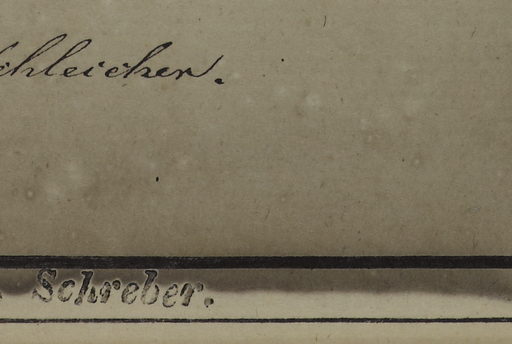 Schleicher.
Schreber.